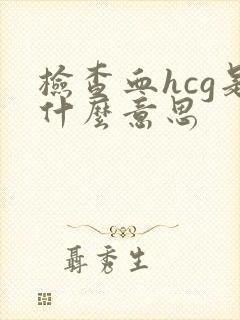 檢查血hcg是
什麼意思
聶秀生